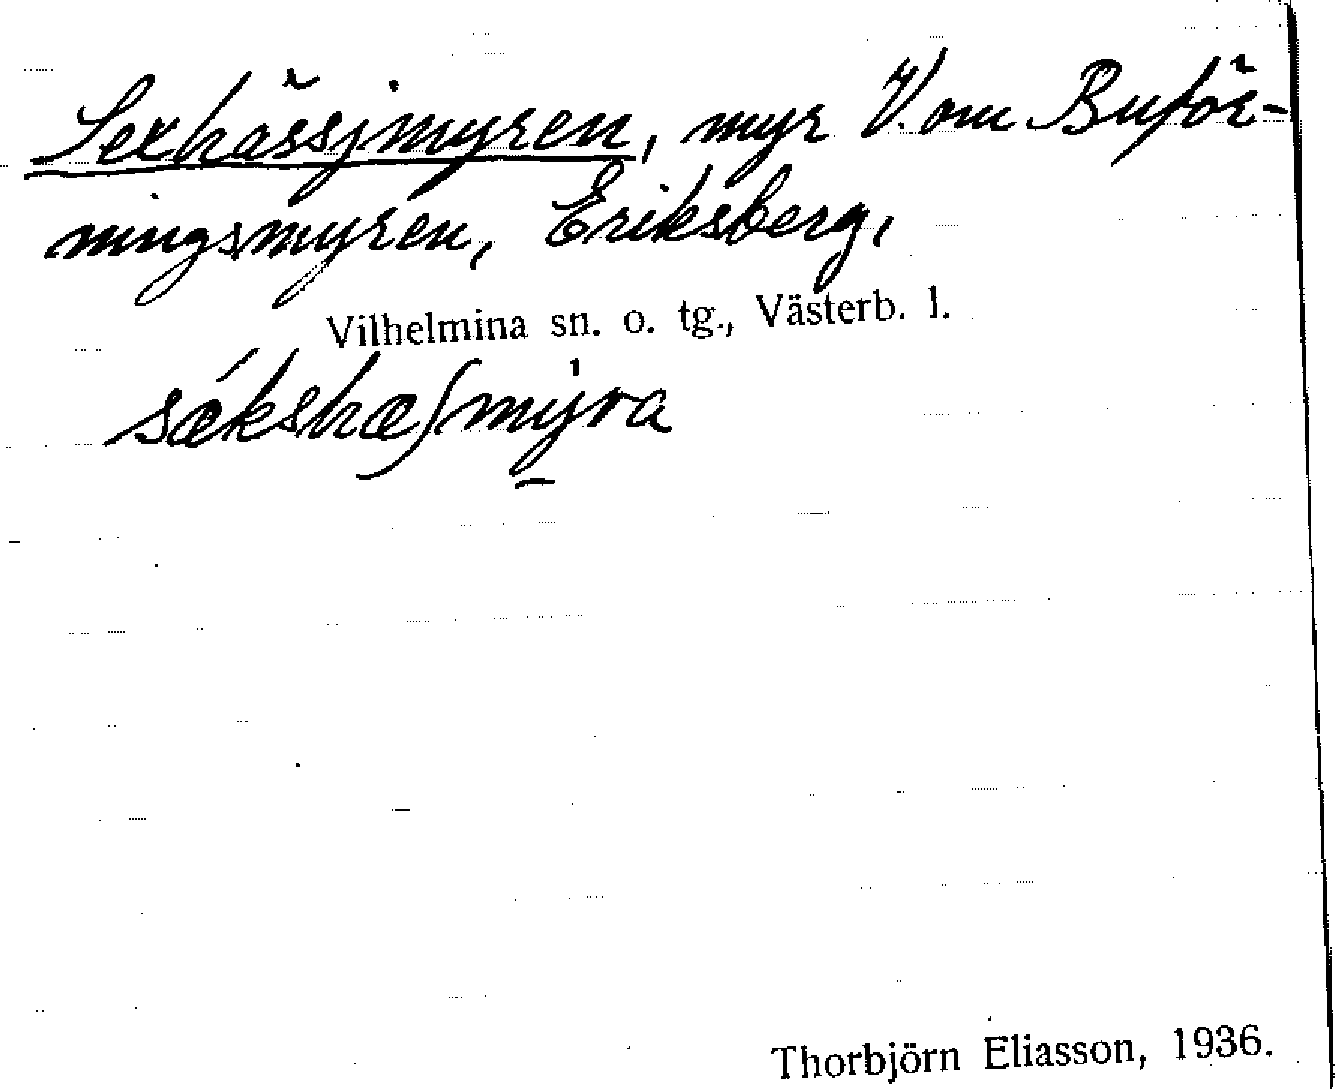 Sexhässjmyren, myr V. om Buför-
ningsmyren, Eriksberg,
Vilhelmina sn. o. tg., Västerb. l.
sǽkshæʃmyra
Thorbjörn Eliasson, 1936.